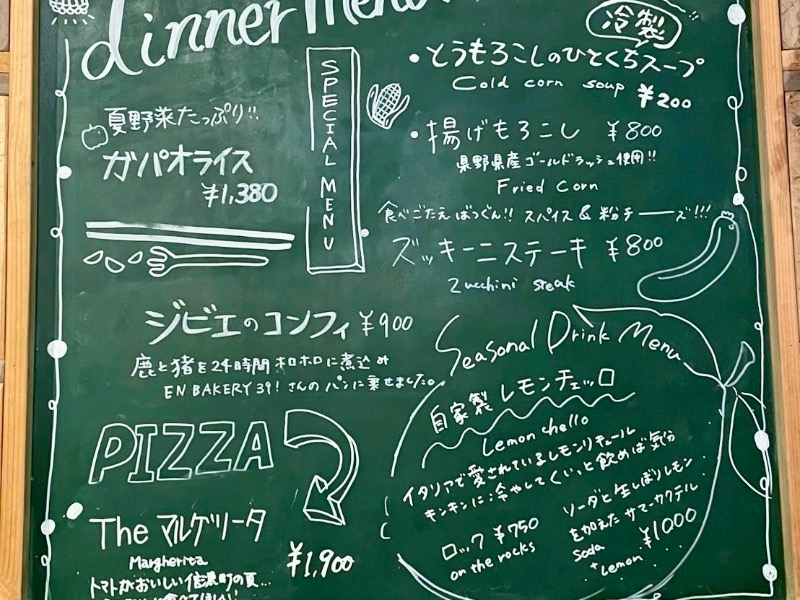 dinner menu
SPECIAL MENU
夏野菜たっぷり!!
ガパオライス
¥1,380
冷製
・とうもろこしのひとくちスープ
Cold corn soup
¥200
・揚げもろこし ¥800
県野県産ゴールドラッシュ使用!!
Fried corn
食べごたえばつぐん!! スパイス&粉チーーズ!!!
ズッキーニステーキ ¥800
Zucchini steak
ジビエのコンフィ ¥900
鹿と猪を24時間ホロホロに煮込み
EN BAKERY 39! さんのパンに乗せました。
PIZZA
The マルゲリータ
Margherita
¥1,900
トマトがおいしい信濃町の夏...
Seasonal Drink Menu
自家製レモンチェッロ
Lemon chello
イタリアで愛されているレモンリキュール
キンキンに冷やしてくいっと飲めば気分
ロック ¥750
on the rocks
ソーダと生しぼりレモン
を加えた サマーカクテル
soda
+ lemon
¥1000